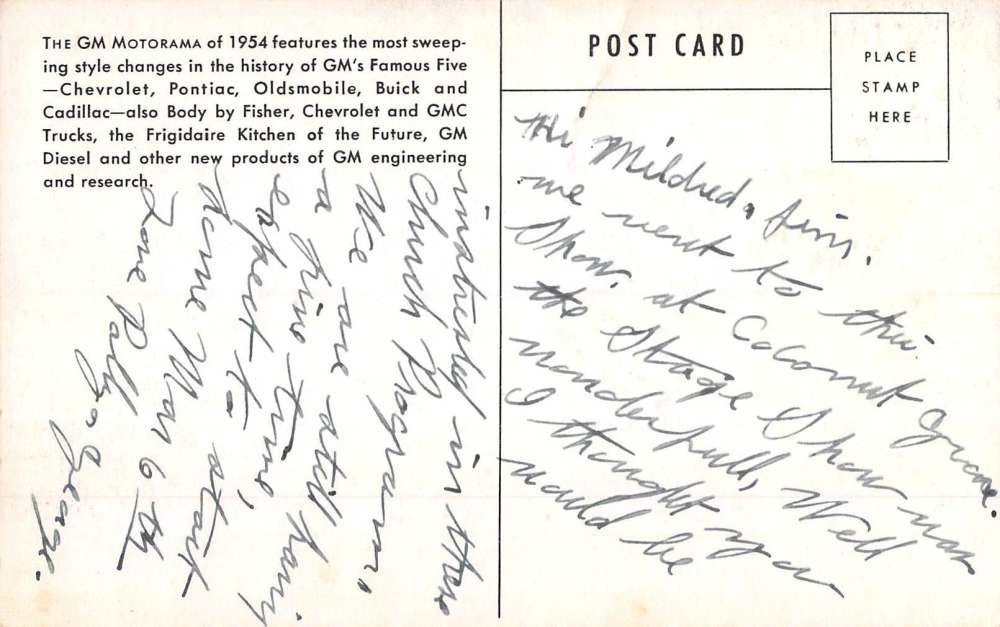 THE GM MOTORAMA of 1954 features the most sweep-
ing style changes in the history of GM's Famous Five
—Chevrolet, Pontiac, Oldsmobile, Buick and
Cadillac—also Body by Fisher, Chevrolet and GMC
Trucks, the Frigidaire Kitchen of the Future, GM
Diesel and other new products of GM engineering
and research.
POST CARD
PLACE
STAMP
HERE
Hi Mildred, Jim,
we went to this
Show. at Coconut Grove.
the Stage Show was
wonderfull, Well
I thought you
would be
intrested in these
Church Program,
We are still having
a fine time,
expect to start
home Mar 6 th
Love Polly & George.